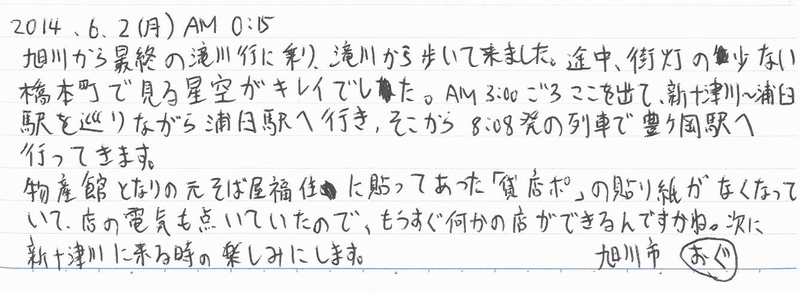 2014.6.2(月) AM 0:15
旭川から最終の滝川行に乗り、滝川から歩いて来ました。途中、街灯の少ない
橋本町で見る星空がキレイでした。AM 3:00ごろここを出て、新十津川〜浦臼
駅を巡りながら浦臼駅へ行き、そこから 8:08発の列車で豊ヶ岡駅へ
行ってきます。
物産館となりの元そば屋福住に貼ってあった「貸店ポ」の貼り紙がなくなって
いて、店の電気も点いていたので、もうすぐ何かの店ができるんですかね。次に
新十津川に来る時の楽しみにします。 旭川市 おぐ